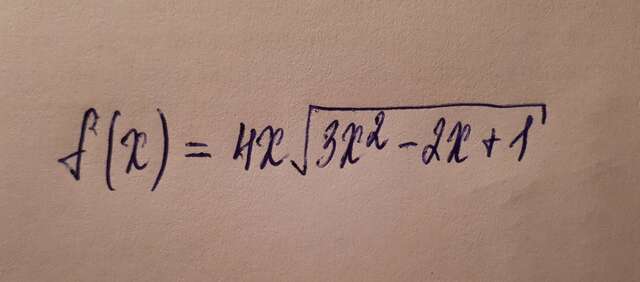 f(x) = 4x√(3x² - 2x + 1)